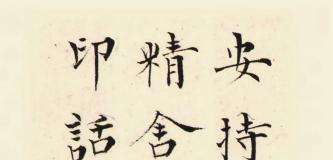 安持
精舍
印話